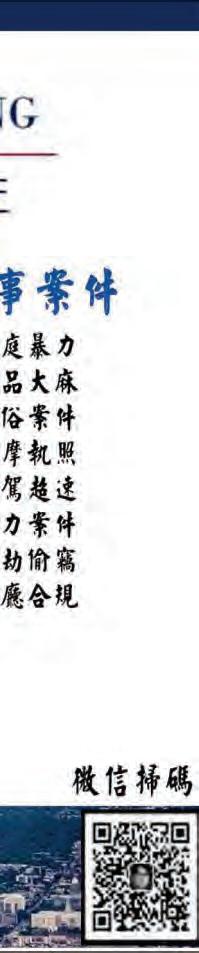 NG
事案件
庭暴力
品大麻
俗案件
摩執照
駕超速
力案件
劫偷竊
廳合規
微信掃碼